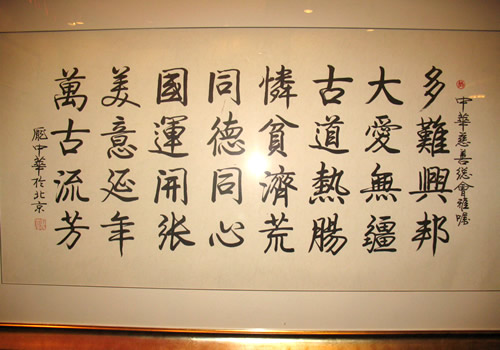 中華慈善總會雅囑
多難興邦
大愛無疆
古道熱腸
憐貧濟荒
同德同心
國運開張
美意延年
萬古流芳
龐中華於北京